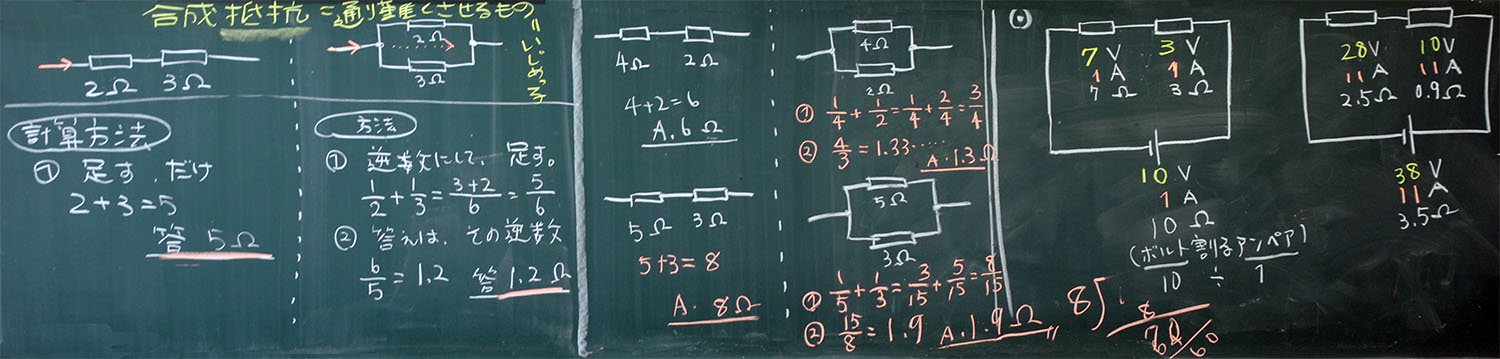 合成抵抗=通り重くさせるもの
=いじめっ子
2Ω 3Ω
計算方法
① 足す.だけ
2+3=5
答 5Ω
2Ω
3Ω
方法
① 逆数にして、足す。
1/2+1/3=3+2/6=5/6
② 答えは、その逆数
6/5=1.2 答 1.2Ω
4Ω 2Ω
4+2=6
A.6Ω
5Ω 3Ω
5+3=8
A.8Ω
4Ω
2Ω
① 1/4+1/2=1/4+2/4=3/4
② 4/3=1.33·····
A.1.3Ω
5Ω
3Ω
① 1/5+1/3=3/15+5/15=8/15
② 15/8=1.9 A.1.9Ω
8)
7V 3V
1A 1A
7Ω 3Ω
10V
1A
10Ω
(ボルト割るアンペア)
10 ÷ 1
28V 10V
11A 11A
2.5Ω 0.9Ω
38V
11A
3.5Ω